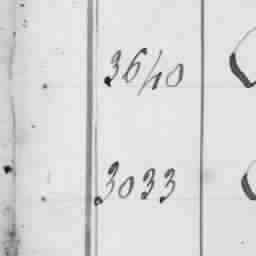 3640
3033